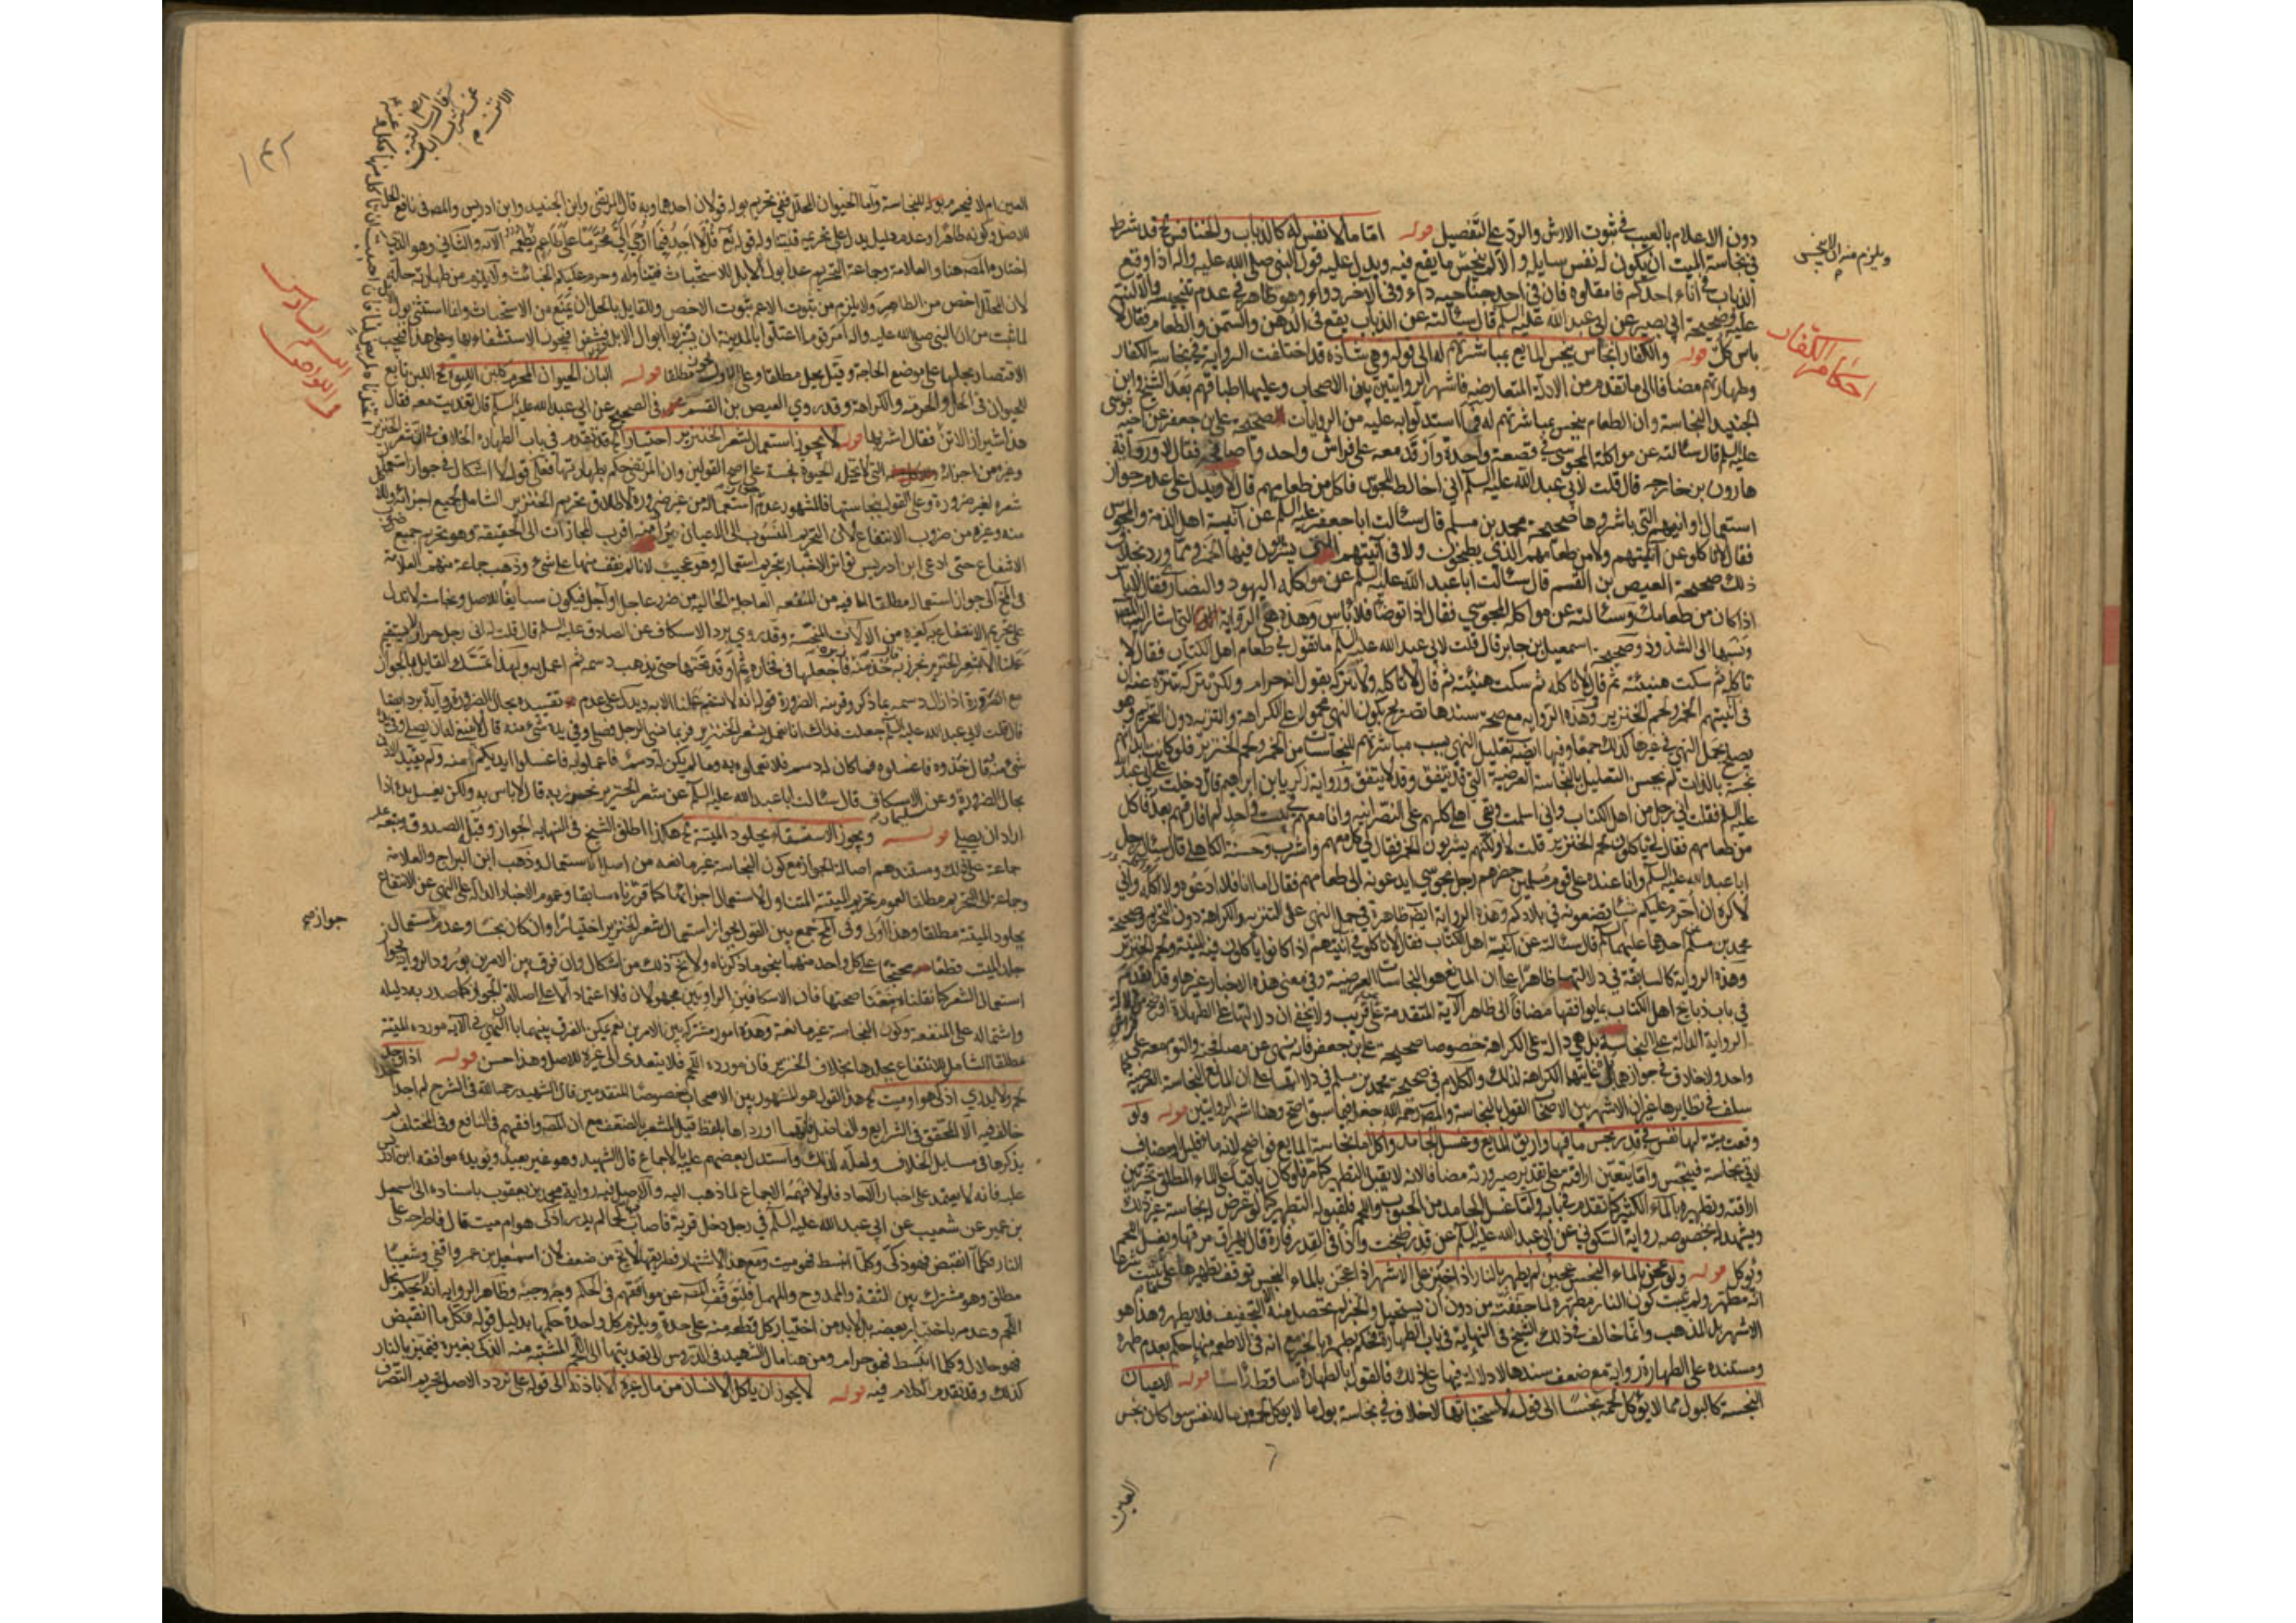 دون الاعلام بالعيب في ثبوت الارش والرد على التفصيل قوله اما ما لا نفس له كالذباب والخنافس قد شرط
في نجاسة الميت ان يكون له نفس سايلة والا لم ينجس ما يقع فيه ويدل عليه قول النبي صلى الله عليه واله اذا وقع
الذباب في اناء احدكم فامقلوه فان في احد جناحيه داء وفي الاخر دواء وهو ظاهر في عدم تنجيسه
وصحيحة ابي بصير عن ابي عبد الله عليه السلم قال سئالته عن الذباب يقع في الدهن والسمن والطعام فقال لا
باس كل قوله والكفار انجاس ينجس المايع بمباشرتهم له الى قوله وهي شاذة قد اختلفت الرواية في نجاسة الكفار
وطهارتهم مضافا الى ما تقدم من الادلة المتعارضة فاشهر الروايتين بين الاصحاب وعليها اطباقهم بعد الشيخ وابن
الجنيد النجاسة وان الطعام ينجس بمباشرتهم له فمما استدلوا به عليه من الروايات صحيحة علي بن جعفر عن اخيه موسى
عليه السلم قال سئالته عن مواكلة المجوسي في قصعة واحدة وارقد معه على فراش واحد واصافحه فقال لا ورواية
هارون بن خارجه قال قلت لابي عبد الله عليه السلم اني اخالط المجوس فاكل من طعامهم قال لا ويدل على عدم جواز
استعمال اوانيهم التي باشروها صحيحة محمد بن مسلم قال سئالت ابا جعفر عليه السلم عن آنية اهل الذمة والمجوس
فقال لا تاكلو عن آنيتهم ولا من طعامهم الذي يطبخون ولا في آنيتهم التي يشربون فيها الخمر ومما ورد بخلاف
ذلك صحيحة العيص بن القسم قال سئالت ابا عبد الله عليه السلم عن مواكلة اليهود والنصارى فقال لا باس
اذا كان من طعامك وسئالته عن مواكلة المجوسي فقال اذا توضا فلا باس وهذه هي الرواية التي اشار اليها المصنف
ونسبها الى الشذوذ وصحيحة اسمعيل بن جابر قال قلت لابي عبد الله عليه السلم ما تقول في طعام اهل الكتاب فقال لا
تاكله ثم سكت هنيئة ثم قال لا تاكله ثم سكت هنيئة ثم قال لا تاكله ولا تتركه تقول انه حرام ولكن تتركه تنزه عنه ان
في آنيتهم الخمر ولحم الخنزير وهذه الرواية مع صحة سندها تصريح بكون النهي محمول على الكراهة والتنزيه دون التحريم وهو
يصلح لحمل النهي في غيرها كذلك جمعا وفيها ايضا تعليل النهي بسبب مباشرتهم للنجاسات من الخمر ولحم الخنزير فلو كانت ابدانهم
نجسة بالذات لم يحسن التعليل بالنجاسة العرضية التي قد تتفق وقد لا يتفق ورواية زكريا بن ابراهيم قال دخلت على ابي عبد الله
عليه السلم فقلت اني رجل من اهل الكتاب واني اسلمت وبقي اهلي كلهم على النصرانية وانا معهم في بيت واحد لم افارقهم بعد فاكل
من طعامهم فقال لي ياكلون لحم الخنزير قلت لا ولكنهم يشربون الخمر فقال لي كل معهم واشرب وحسنة الكاهلي قال سئال رجل
ابا عبد الله عليه السلم وانا عنده عن قوم مسلمين حضرهم رجل مجوسي ايدعونه الى طعامهم فقال اما انا فلا ادعوه ولا اواكله واني
لاكره ان احرم عليكم شيئا تصنعونه في بلادكم وهذه الرواية ايضا ظاهرة في حمل النهي على التنزيه والكراهة دون التحريم وصحيحة
محمد بن مسلم عن احدهما عليهما السلم قال سئالته عن آنية اهل الكتاب فقال لا تاكلو في آنيتهم اذا كانوا ياكلون فيه الميتة ولحم الخنزير
وهذه الرواية كالسابقة في دلالتها ظاهرا على ان المانع هو النجاسات العرضية وفي معنى هذه الاخبار غيرها وقد تقدم
في باب ذبايح اهل الكتاب ما يوافقها مضافا الى ظاهر الآية المتقدمة عن قريب ولا يخفى ان دلالتها على الطهارة اوضح من دلالة
الرواية الدالة على النجاسة بل هي دالة على الكراهة خصوصا صحيحة علي بن جعفر فانه نهي عن مصافحته والنوم معه على فراش
واحد ولا خلاف في جوازهما بل غايتها الكراهة لذلك والكلام في صحيحة محمد بن مسلم في دلالتها على ان المانع النجاسة العرضية كما
سلف في نظايرها غير ان الاشهر بين الاصحاب القول بالنجاسة والمصنف رحمه الله جعل فيما سبق اصح وهنا اشهر الروايتين قوله ولو
وقعت ميتة لها نفس في قدر ينجس ما فيها واريق المايع وغسل الجامد واكل اما نجاسة المايع فواضح لانه ماء قليل او مضاف
لاقى نجاسة فينجس واما يتعين اراقته على تقدير صيرورته مضافا لانه لا يقبل التطهير كما مر فلو كان باقيا على الماء المطلق تخير بين
اراقته وتطهيره بالماء الكثير كما تقدم في بابه واما غسل الجامد من الحبوب واللحم فلقبوله التطهير كما لو عرض له نجاسة غير ذلك
ويشهد له بخصوصه رواية السكوني عن ابي عبد الله عليه السلم عن قدر طبخت واذا في القدر فارة قال يهراق مرقها ويغسل اللحم
ويؤكل قوله ولو عجن بالماء النجس عجين لم يطهر بالنار اذا خبز على الاشهر اذا عجن بالماء النجس توقف تطهيره على ما يثبت شرعا
انه مطهر ولم يثبت كون النار مطهرة لما جففته من دون ان يستحيل والخبز لم يحصل منه الا التجفيف فلا يطهر وهذا هو
الاشهر بل المذهب وانما خالف في ذلك الشيخ في النهاية في باب الطهارة فحكم بطهره بالخبز مع انه في الاطعمة منها حكم بعدم طهره
ومستنده على الطهارة رواية مع ضعف سندها لا دلالة فيها على ذلك فالقول بالطهارة ساقط راسا قوله الاعيان
النجسة كالبول مما لا يؤكل لحمه نجسا الى قوله لاستخباثها لا خلاف في نجاسة بول ما لا يؤكل لحمه من ما له نفس سواء كان نجس
العين
ويلزم منه ان لا ينجس
احكام الكفار
١٤٢
العين ام لا فيحرم بوله للنجاسة واما الحيوان المحلل ففي تحريم بوله قولان احدهما وبه قال المرتضى وابن الجنيد وابن ادريس والمصنف في نافع الحل
للاصل وكونه طاهرا وعدم دليل يدل على تحريمه فتناوله قوله تع قل لا اجد فيما اوحي الي محرما على طاعم يطعمه الآية والثاني وهو الذي
اختاره المصنف هنا والعلامة وجماعة التحريم عدا بول الابل للاستخباث فيتناوله وحرم عليكم الخبائث ولا يلزم من طهارته حله
لان المحلل اخص من الطاهر ولا يلزم من ثبوت الاعم ثبوت الاخص والقايل بالحل ان يمنع من الاستخباث وانما استثنى بول
لما ثبت من ان النبي صلى الله عليه واله امر قوما اعتلوا بالمدينة ان يشربوا ابوال الابل فشفوا فيجوز الاستشفاء بها وعلى هذا فيجب
الاقتصار بحلها على موضع الحاجة وقيل يحل مطلقا وعلى الاول يجوز مطلقا قوله البان الحيوان المحرم كلبن اللبوة الخ اللبن تابع
للحيوان في الحل والحرمة والكراهة وقد روي العيص بن القسم في الصحيح عن ابي عبد الله عليه السلم قال تغديت معه فقال
هذا شيراز الاتن فقال اشربها قوله لا يجوز استعمال شعر الخنزير اختيارا الخ قد تقدم في باب الطهارة الخلاف في ان شعر الخنزير
وغيره من اجزائه التي لا تحله الحيوة نجسة على اصح القولين وان المرتضى حكم بطهارتها فعلى قوله لا اشكال في جواز استعمال
شعره لغير ضرورة وعلى القول بنجاستها فالمشهور عدم استعماله من غير ضرورة لاطلاق تحريم الخنزير الشامل لجميع اجزائه
منه وغيره من ضروب الانتفاع لان التحريم المنسوب الى الاعيان يراد منه اقرب المجازات الى الحقيقة وهو تحريم جميع
الانتفاع حتى ادعى ابن ادريس تواتر الاخبار بتحريم استعماله وهو عجيب لانا لم نقف منها على شيء وذهب جماعة منهم العلامة
في المخ الى جواز استعماله مطلقا لما فيه من المنفعة العاجلة الخالية من ضرر عاجل او آجل فيكون سايغا للاصل ونجاسته لا تدل
على تحريم الانتفاع به كغيره من الآلات النجسة وقد روي برد الاسكاف عن الصادق عليه السلم قال قلت له اني رجل خراز لا يستقيم
عملنا الا بشعر الخنزير نخرز به قال خذ منه فاجعلها في فخارة ثم اوقد تحتها حتى يذهب دسمه ثم اعمل به ولهذا تمسك القايل بالجواز
مع الضرورة اذا زال دسمه بما ذكر وقرينة الضرورة قوله انه لا يستقيم عملنا الا به ويدل على عدم تقييده بحال الضرورة رواية برد ايضا
قال قلت لابي عبد الله عليه السلم جعلت فداك انا نعمل بشعر الخنزير فربما نسي الرجل فصلى وفي يده شيء منه قال لا ينبغي له ان يصلي وفي يده
شيء منه قال خذوه فاغسلوه فما كان له دسم فلا تعملوا به وما لم يكن له دسم فاعملوا به واغسلوا ايديكم منه ولم يقيد الاذن
بحال الضرورة وعن سليمان الاسكاف قال سئالت ابا عبد الله عليه السلم عن شعر الخنزير نخرز به قال لا باس به ولكن يغسل يده اذا
اراد ان يصلي قوله ويجوز الاستسقاء بجلود الميتة الخ هكذا اطلق الشيخ في النهاية الجواز وقبله الصدوق وتبعه
جماعة على ذلك ومستندهم اصالة الجواز مع كون النجاسة غير مانعة من اصل الاستعمال وذهب ابن البراج والعلامة
وجماعة الى التحريم مطلقا لعموم تحريم الميتة المتناول لاستعمال اجزائها كما قررناه سابقا وعموم الاخبار الدالة على النهي عن الانتفاع
بجلود الميتة مطلقا وهذا اولى وفي المخ جمع بين القول بجواز استعمال شعر الخنزير اختيارا وان كان نجسا وعدم استعمال
جلد الميت قطعا محتجا على كل واحد منهما بنحو ما ذكرناه ولا يخ ذلك من اشكال وان فرق بين الامرين بورود الرواية بجواز
استعمال الشعر كما نقلناه منعنا صحتها فان الاسكافين الراويين مجهولان فلا اعتماد الا على اصالة الجواز كما صدر به دليله
واشتماله على المنفعة وكون النجاسة غير مانعة وهذه امور مشتركة بين الامرين نعم يمكن الفرق بينهما بان النهي في الآية مورده الميتة
مطلقا الشامل للانتفاع بجلدها بخلاف الخنزير فان مورده اللحم فلا يتعدى الى غيره للاصل وهذا حسن قوله اذا وجد
لحم ولا يدري اذكي هو او ميت الخ هذا القول هو المشهور بين الاصحاب خصوصا المتقدمين قال الشهيد رحمه الله في الشرح لم اجد احدا
خالف فيه الا المحقق في الشرايع والفاضل فانهما اورداها بلفظ قيل المشعر بالضعف مع ان المصنف وافقهم في النافع وفي المختلف لم
يذكرها في مسايل الخلاف ولعله لذلك واستدل بعضهم عليه بالاجماع قال الشهيد وهو غير بعيد ويؤيده موافقة ابن ادريس
عليه فانه لا يعتمد على اخبار الآحاد فلولا فهمه الاجماع لما ذهب اليه والاصل فيه رواية محمد بن يعقوب باسناده الى اسمعيل
بن عمير عن شعيب عن ابي عبد الله عليه السلم في رجل دخل قرية فاصاب فيها لحما لم يدر اذكي هو ام ميت قال فاطرحه على
النار فكلما انقبض فهو ذكي وكلما انبسط فهو ميت ومع هذا الاشتهار فطريقها لا يخ من ضعف لان اسمعيل بن عمر واقفي وشعيبا
مطلق وهو مشترك بين الثقة والممدوح والمهمل فلتوقف المصنف عن موافقتهم في الحكم وجه وجيه وظاهر الرواية انه لا يحكم بحل
اللحم وعدمه باختبار بعضه بل لا بد من اختبار كل قطعة منه على حدة ويلزم كل واحدة حكمها بدليل قوله فكلما انقبض
فهو حلال وكلما انبسط فهو حرام ومن هنا مال الشهيد في الدروس الى تعديتها الى اللحم المشتبه منه الذكي بغيره فيتميز بالنار
كذلك وقد تقدم الكلام فيه قوله لا يجوز ان ياكل الانسان من مال غيره الا باذنه الى قوله على تردد الاصل تحريم التصرف
القسم السادس
في اللواحق